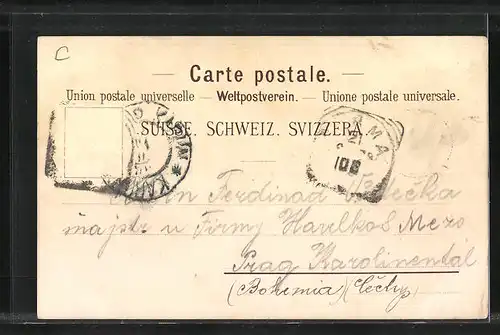 C
Carte postale.
Union postale universelle — Weltpostverein. — Unione postale universale.
SUISSE. SCHWEIZ. SVIZZERA.
Ferdinad
majstr u Firmy Havelkos
Prag Karolinental
(Bohemia) (Čechy)